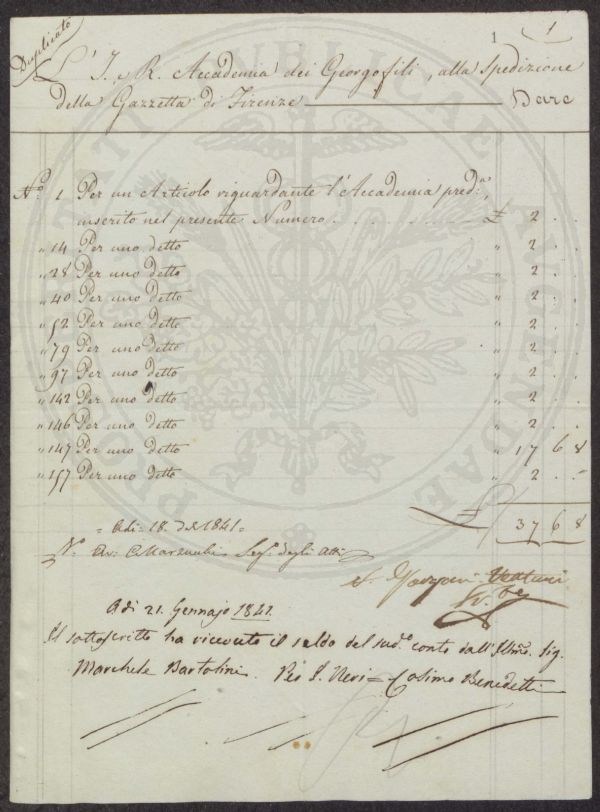 Duplicato
1 1
L'I. e R. Accademia dei Georgofili, alla Spedizione
della Gazzetta di Firenze Dare
N.° 1 Per un Articolo riguardante l'Accademia pred.ª,
inserito nel presente Numero £ 2 . .
" 14 Per uno detto " 2 . .
" 28 Per uno detto " 2 . .
" 40 Per uno detto " 2 . .
" 52 Per uno detto " 2 . .
" 79 Per uno detto " 2 . .
" 97 Per uno detto " 2 . .
" 142 Per uno detto " 2 . .
" 146 Per uno detto " 2 . .
" 147 Per uno detto " 17 6 8
" 157 Per uno detto " 2 . .
£ 37 6 8
Adi 18 1841
Seg.° degli Atti
Adi 21. Gennajo 1841.
Il sottoscritto ha ricevuto il saldo del sud.° conto dall'Illmo. Sig.
Marchese Bartolini. Per Neri = Cosimo Benedetti
PROSPERITATI PUBLICAE AUGENDAE